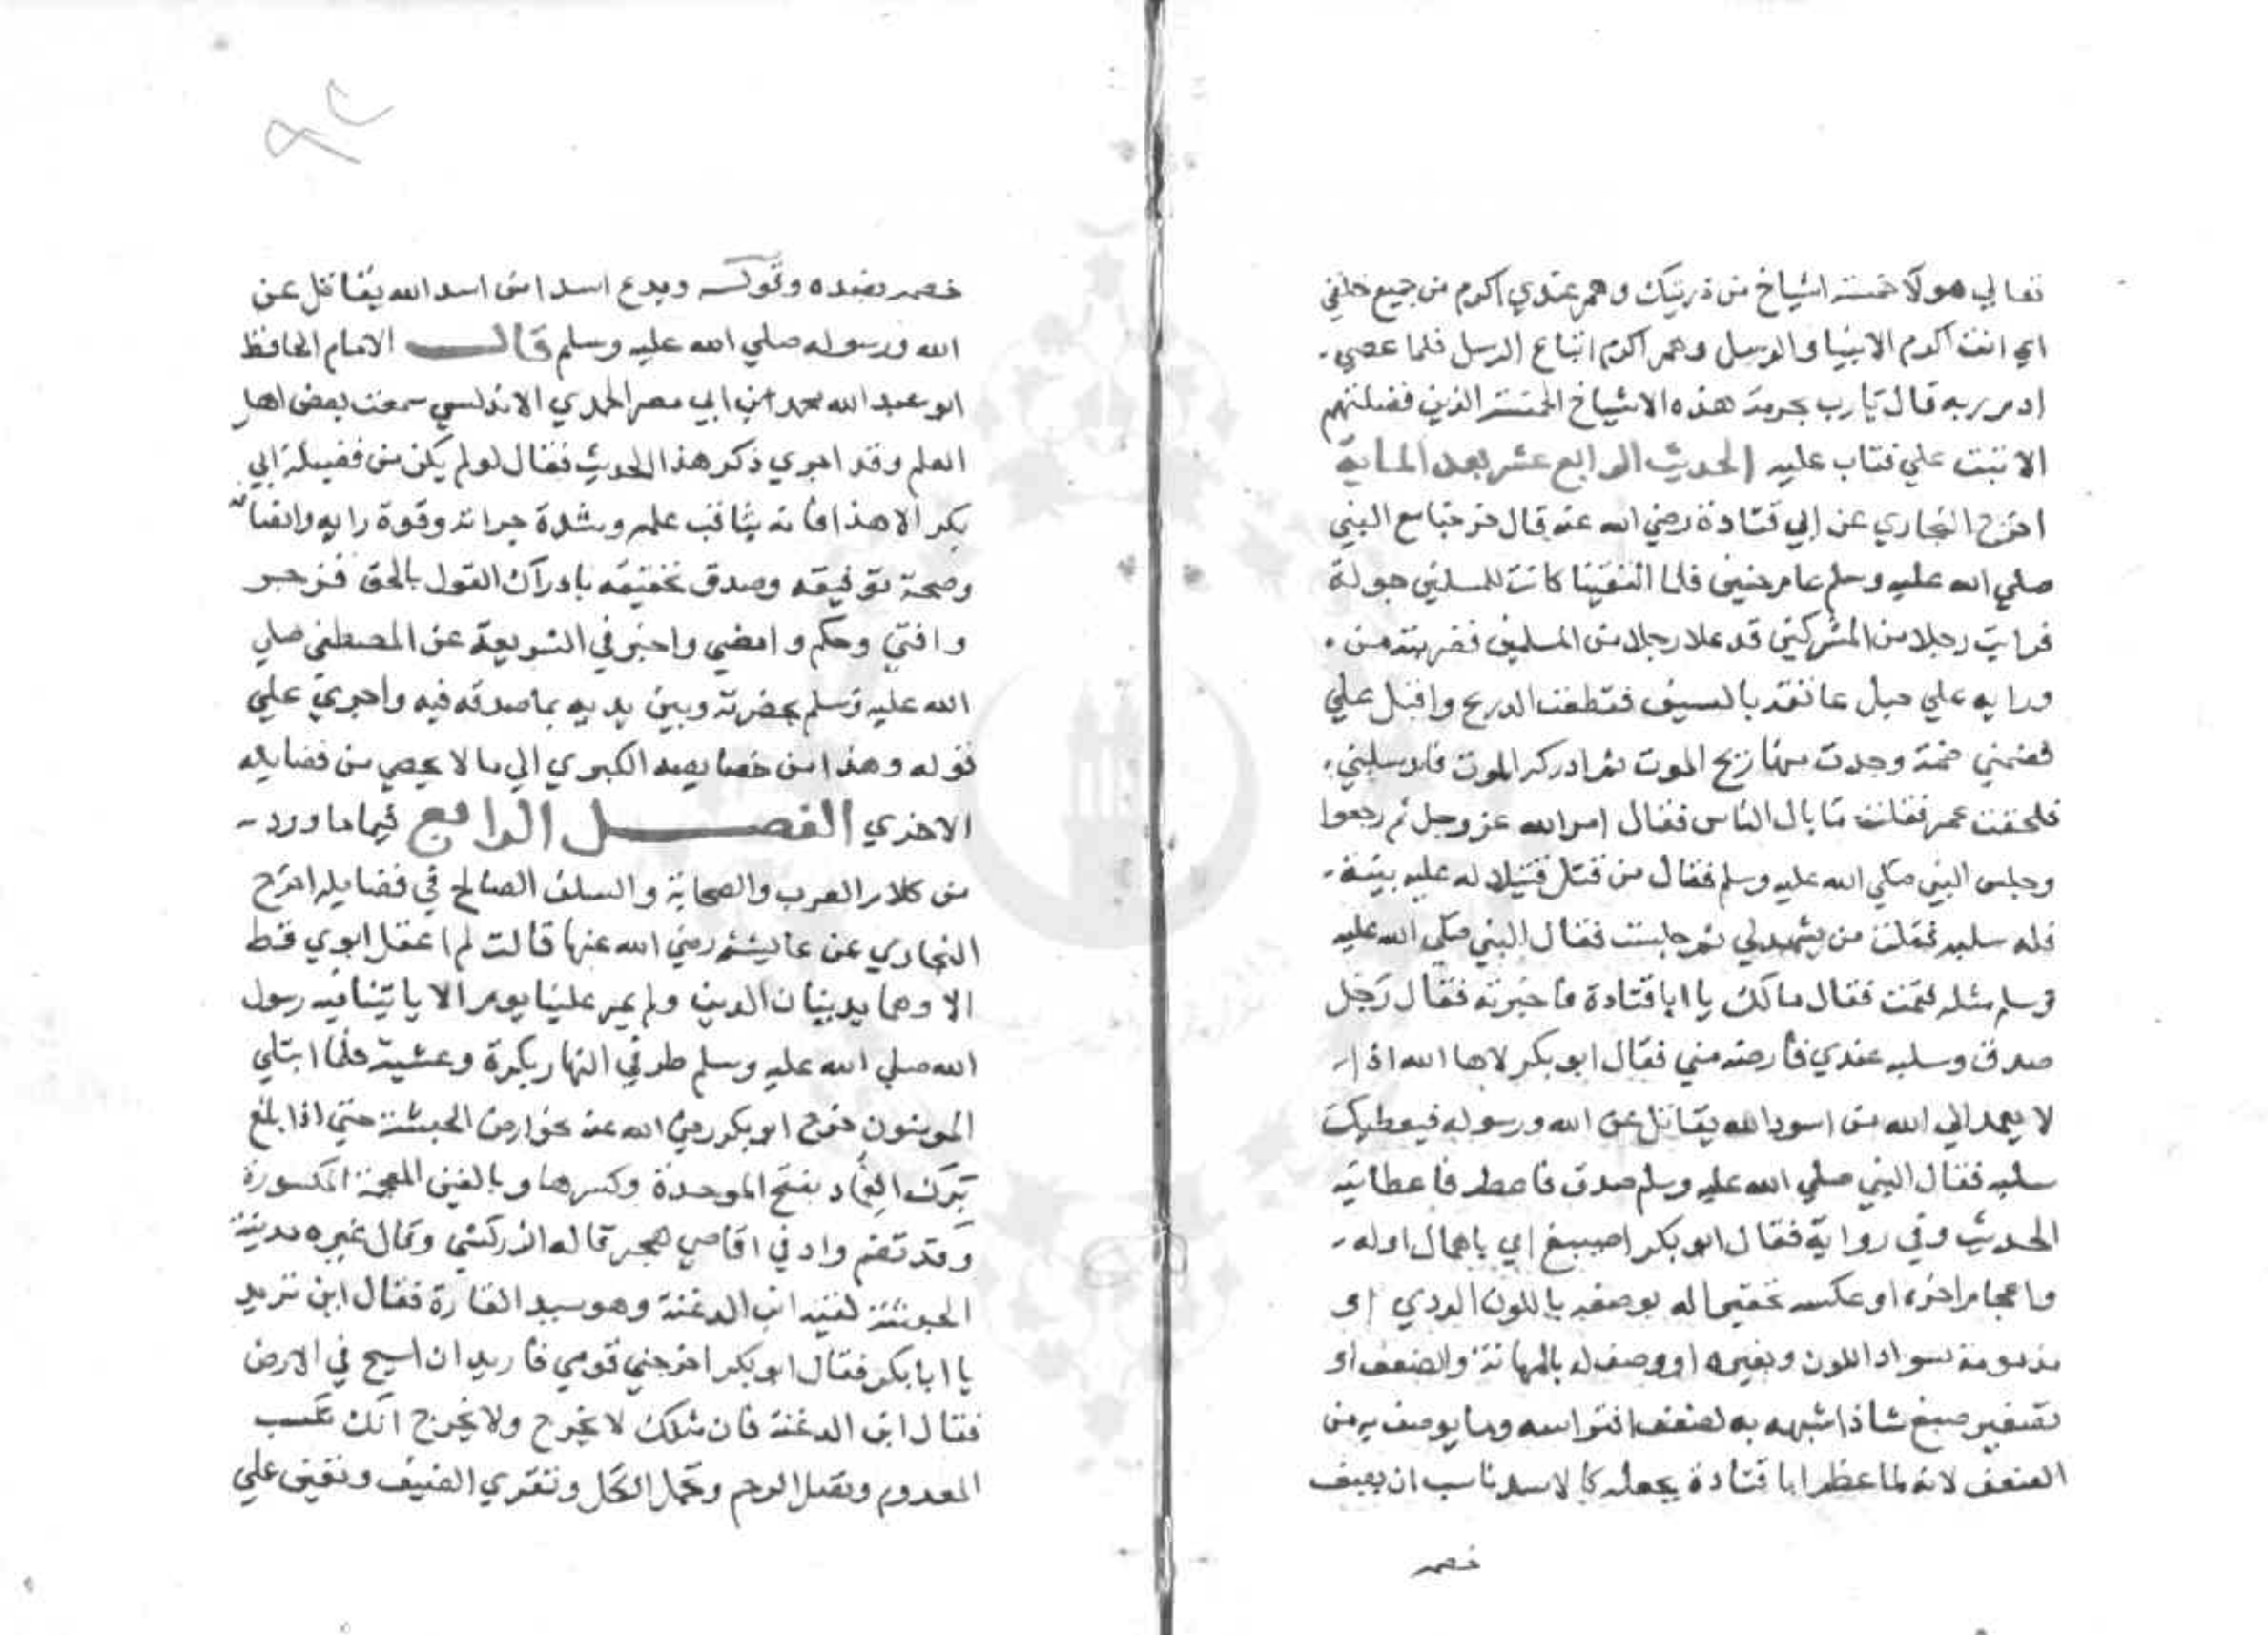 تعالي هولآ خمسة اشياخ من ذريتك وهم عندي اكرم من جميع خلقي
اي انت اكرم الانبيا والرسل وهم اكرم اتباع الرسل فلما عصي
ادم ربه قال يا رب بحرمة هذه الاشياخ الخمسة الذين فضلتهم
الا تبت علي فتاب عليه الحديث الرابع عشر بعد الماية
اخرج البخاري عن ابي قتادة رضي الله عنه قال خرجنا مع النبي
صلي الله عليه وسلم عام حنين فلما التقينا كانت للمسلمين جولة
فرايت رجلا من المشركين قد علا رجلا من المسلمين فضربته من
ورايه علي حبل عاتقه بالسيف فقطعت الدرع واقبل علي
فضمني ضمة وجدت منها ريح الموت ثم ادركه الموت فارسلني
فلحقت عمر فقلت ما بال الناس فقال امر الله عز وجل ثم رجعوا
وجلس النبي صلي الله عليه وسلم فقال من قتل قتيلا له عليه بينة
فله سلبه فقلت من يشهد لي ثم جلست فقال النبي صلي الله عليه
وسلم مثله فقمت فقال مالك يا ابا قتادة فاخبرته فقال رجل
صدق وسلبه عندي فارضه مني فقال ابو بكر لاها الله اذا
لا يعمد الي الله من اسود الله يقاتل عن الله ورسوله فيعطيك
سلبه فقال النبي صلي الله عليه وسلم صدق فاعطه فاعطانيه
الحديث وفي رواية فقال ابو بكر اصيبغ اي باهمال اوله
واعجام اخره او عكسه تحقيرا له بوصفه باللون الردي او
مذمومة بسواد اللون وتغيره او وصف له بالمهانة والضعف او
تصغير صبغ شاذا شبهه به لضعف افتراسه وما يوصف به من
الضعف لانه لما عظم ابا قتادة بجعله كالاسد ناسب ان يصف
خصمه
خصمه بضده وتركه ويدع اسدا من اسد الله يقاتل عن
الله ورسوله صلي الله عليه وسلم قال الامام الحافظ
ابو عبد الله محمد ابن ابي نصر الحمدي الاندلسي سمعت بعض اهل
العلم وقد اجري ذكر هذا الحديث فقال لو لم يكن من فضيلة ابي
بكر الا هذا فانه بثاقب علمه وشدة جراته وقوة رايه وانصافه
وصحة توفيقه وصدق تحقيقه بادراك القول بالحق فزجر
وافتي وحكم وامضي واخبر في الشريعة عن المصطفي صلي
الله عليه وسلم بحضرته وبين يديه بما صدقه فيه واجري علي
قوله وهذا من خصايصه الكبري الي ما لا يحصي من فضايله
الاخري الفصل الرابع فيما ورد
من كلام العرب والصحابة والسلف الصالح في فضايله اخرج
البخاري عن عايشة رضي الله عنها قالت لم اعقل ابوي قط
الا وهما يدينان الدين ولم يمر علينا يوم الا ياتينا فيه رسول
الله صلي الله عليه وسلم طرفي النهار بكرة وعشية فلما ابتلي
المومنون خرج ابو بكر رضي الله عنه نحو ارض الحبشة حتي اذا بلغ
برك الغماد بفتح الموحدة وكسرها وبالغين المعجمة المكسورة
وقد تضم واد في اقاصي هجر قاله الزركشي وقال غيره مدينة
الحبشة لقيه ابن الدغنة وهو سيد القارة فقال اين تريد
يا ابا بكر فقال ابو بكر اخرجني قومي فاريد ان اسيح في الارض
فقال ابن الدغنة فان مثلك لا يخرج ولا يخرج انك تكسب
المعدوم وتصل الرحم وتحمل الكل وتقري الضيف وتعين علي